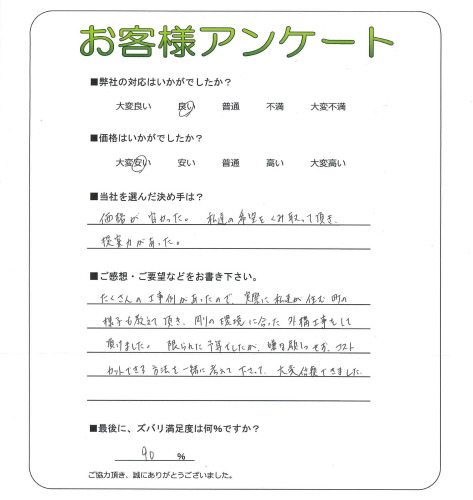 お客様アンケート
■弊社の対応はいかがでしたか？
大変良い 良い 普通 不満 大変不満
■価格はいかがでしたか？
大変安い 安い 普通 高い 大変高い
■当社を選んだ決め手は？
価格が安かった。 私達の希望をくみ取って頂き、
提案力があった。
■ご感想・ご要望などをお書き下さい。
たくさんの工事例があったので、実際に私達が住む町の
様子も教えて頂き、町の環境に合った外構工事をして
頂けました。 限られた予算でしたが、嫌な顔もせず、コスト
カットできる方法を一緒に考えて下さって、大変信頼できました
■最後に、ズバリ満足度は何%ですか？
90 %
ご協力頂き、誠にありがとうございました。